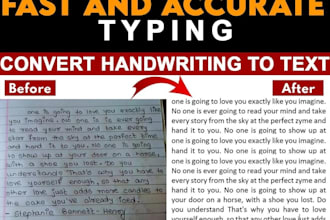 FAST AND ACCURATE
TYPING
CONVERT HANDWRITING TO TEXT
Before
After
one is going to love you exactly like
you imagine. No one is is ever going
to read your mind and take every
star from the sky at the perfect time
and hand it to you. No one is going
to show up at your door on a horse,
with a shoe you lost. Do you
understand? That's why you have to
love yourself enough, so that any
other love just adds more candles to
the cake you've already iced.
Stephanie Bennett-Henry
one is going to love you exactly like you imagine.
No one is ever going to read your mind and take
every story from the sky at the perfect zyme and
hand it to you. No one is going to show up at
one is going to love you exactly like you imagine.
No one is ever going to read your mind and take
every story from the sky at the perfect zyme and
hand it to you. No one is going to show up at
your door on a horse, with a shoe you lost. Do
you understand That's why you have to love
yourself enough, so that any other love just adds